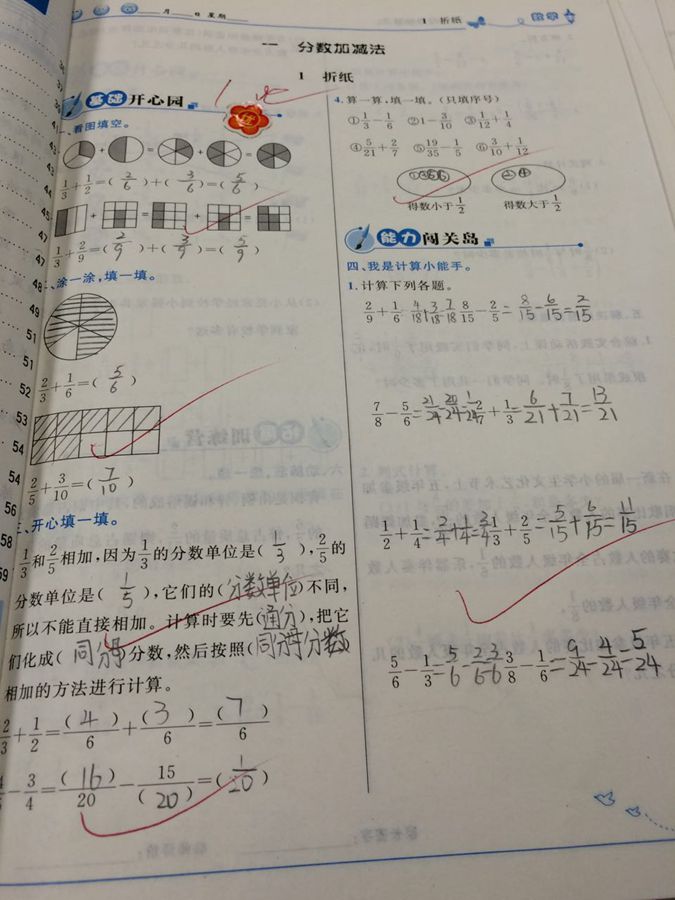 月 日 星期
1 折纸
数学
一 分数加减法
1 折纸
基础 开心园
一、看图填空。
1/3+1/2=(2/6)+(3/6)=(5/6)
1/3+2/9=(2/9)+(3/9)=(5/9)
二、涂一涂,填一填。
2/3+1/6=(5/6)
2/5+3/10=(7/10)
三、开心填一填。
1/3和2/5相加,因为1/3的分数单位是(1/3),2/5的
分数单位是(1/5),它们的(分数单位)不同,
所以不能直接相加。计算时要先(通分),把它
们化成(同分母)分数,然后按照(同分母分数)
相加的方法进行计算。
2/3+1/2=(4)/6+(3)/6=(7)/6
-3/4=(16)/20-15/(20)=(1/20)
4.算一算,填一填。(只填序号)
①1/3-1/6 ②1-3/10 ③1/12+1/4
④5/21+2/7 ⑤19/35-1/5 ⑥3/10+1/12
①③⑤⑥ ②④
得数小于1/2 得数大于1/2
能力 闯关岛
四、我是计算小能手。
1.计算下列各题。
2/9+1/6=4/18+3/18=7/18 8/15-2/5=8/15-6/15=2/15
7/8-5/6=21/24-20/24=1/24 2/7+1/3=6/21+7/21=13/21
1/2+1/4=2/4+1/4=3/4 1/3+2/5=5/15+6/15=11/15
5/6-1/3=5/6-2/6=3/6 3/8-1/6=9/24-4/24=5/24